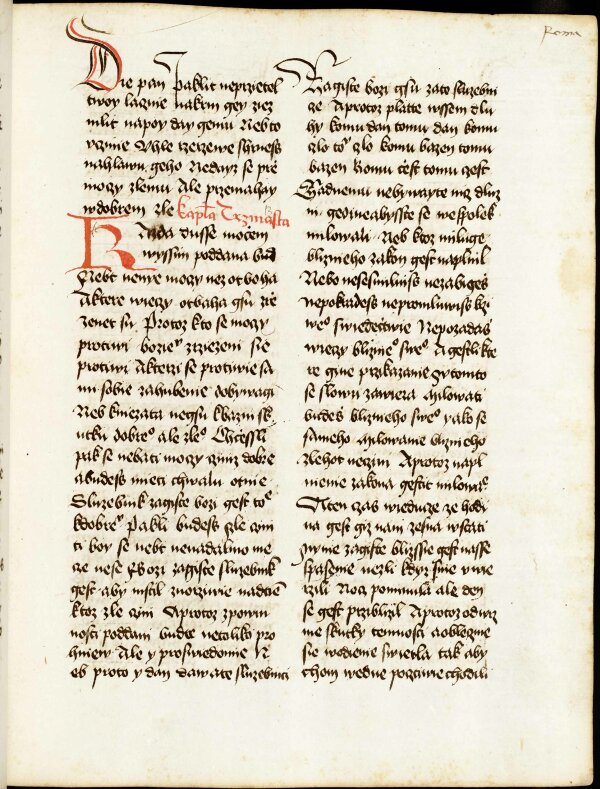 Roma
Die pan Paklit neprzietel
twoy laczne nakrm gey ziez
nilit napoy day gemu Neb to
czinie Uhle rzerzewe shrness
nahlawu geho Neday se prze
mocy zlemu Ale przemahay
wdobrem zle kaptla Trzinasta
Kazda dusse mocem
wyssim poddana bud
Nebt nenye mocy nez ot boha
A ktere wieczy ot baha gsu zrie
zenet su Protoz kto se mocy
protiwi bozieu zrziezeni sie
protiwi A kterzi se protiwie sa
mi sobie zahubenie dobywagi
Neb kniezata negsu kbazni sk
utku dobreo ale zleo Chcessli
pak se nebati mocy czin dobre
abudess mieti chwalu ot nie
Sluzebnik zagiste bozi gest toe
kdobreu Pakli budess zle czini
ti boy se nebt nenadalmo me
cze nese Bozi zagiste sluzebnik
gest aby mstil
ktoz zle czini A protoz zpowin
nosti poddani budte netoliko pro
hniew Ale y proswiedomie N
eb proto y dan dawate sluzebnici
Zagiste bozi gsu zato sluzebni
ze A protoz platte wssem dlu
hy komu dan tomu dan komu
clo toe clo komu bazen tomu
bazen komu czest tomu czest
Zadnemu nebywayte nicz dluz
ni gedine abyste se wespolek
milowali Neb ktoz miluge
blizneho zakon gest naplnil
Nebo nesesmilniss nezabiges
nepokradess nepromluwiss krzi
weo swiedectwie Nepozadass
wieczy blizneo sweo A gestli kte
re gine przikazanie wtomto
se slowu zawiera Milowati
budess blizneho sweo yako se
sameho Milowanie blizneho
zlehot neczini A protoz napl
nenie zakona gestit milowanie
A ten czas wieduce ze hodi
na gest giz nam zesna wstati
Nynie zagiste blizssie gest nasse
spasenie nezli kdyz sme uwie
rzili Noc pominula ale den
se gest przibliził A protoz odwrz
me skutky temnosti a oblecme
sie wodienie swietla tak aby
chom wedne poctiwe chodili